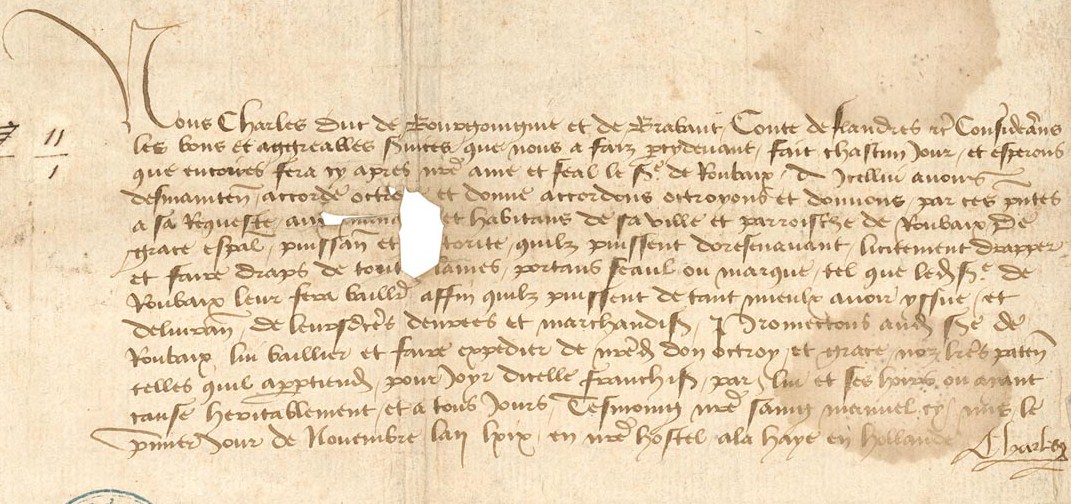 Nous Charles Duc de Bourgoingne et de Brabant Conte de flandres etc Considerans
les bons et aggreables suices que nous a faiz pcydevant, fait chascun Jour, et esperons
que encores fera cy apres nre ame et feal le sr de Roubaix, A Icellui avons
desmainten accorde octroy et donne accordons octroyons et donnons, par ces pntes
a sa Requeste, aux et habitans de sa ville et parroische de Roubaix De
grace espal, puissan et torite, quilz puissent doresenavant, licitement drapper
et faire draps de tout laines, portans seaul ou marque, tel que led sr de
Roubaix leur fera baillr affin quilz puissent de tant mieulx avoir yssue, et
delivran, de leursdtes denrees et marchandis, Promectons aud sr de
Roubaix, lui baillier et faire expedier de nred don octroy, et grace, noz lres paten
telles quil apptiend, pour Joyr dicelle franchis, par lui et ses hoirs, ou aiant
cause heritablement, et a tous Jours, Tesmoing nre saing manuel, cy mis le
pmier Jour de Novembre, lan lxix, en nre hostel, a la haye en hollande
Charles
11
1